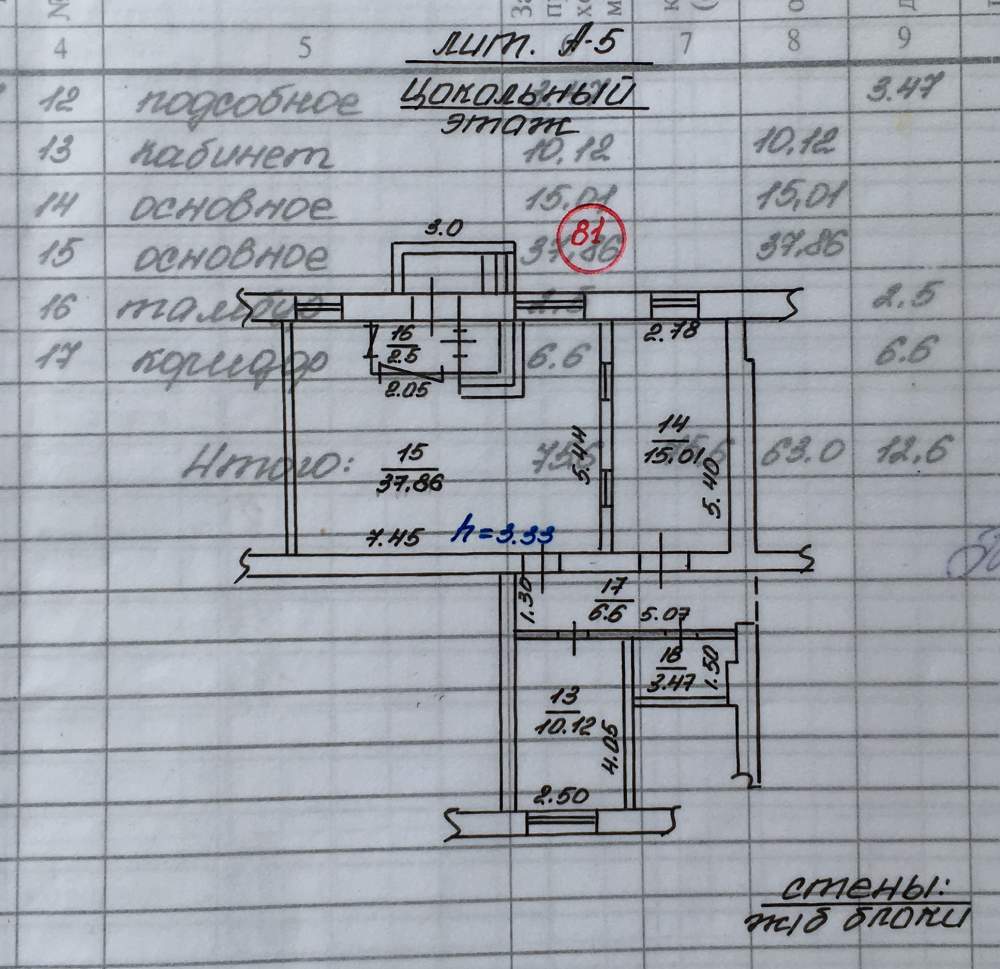 4 5 6 7 8 9
лит. А-5
Цокольный
этаж
12 подсобное 3.47 3.47
13 кабинет 10,12 10,12
14 основное 15,01 15,01
15 основное 37,86 37,86
16 тамбур 2.5 2.5
17 коридор 6.6 6.6
Итого: 75.6 75.6 63.0 12,6
3.0
81
16
2.5
2.05
2.78
15
37.86
5.44
14
15.01
5.40
7.45
h=3.33
1.30
17
6.6
5.07
18
3.47
1.50
13
10.12
4.05
2.50
стены:
ж/б блоки